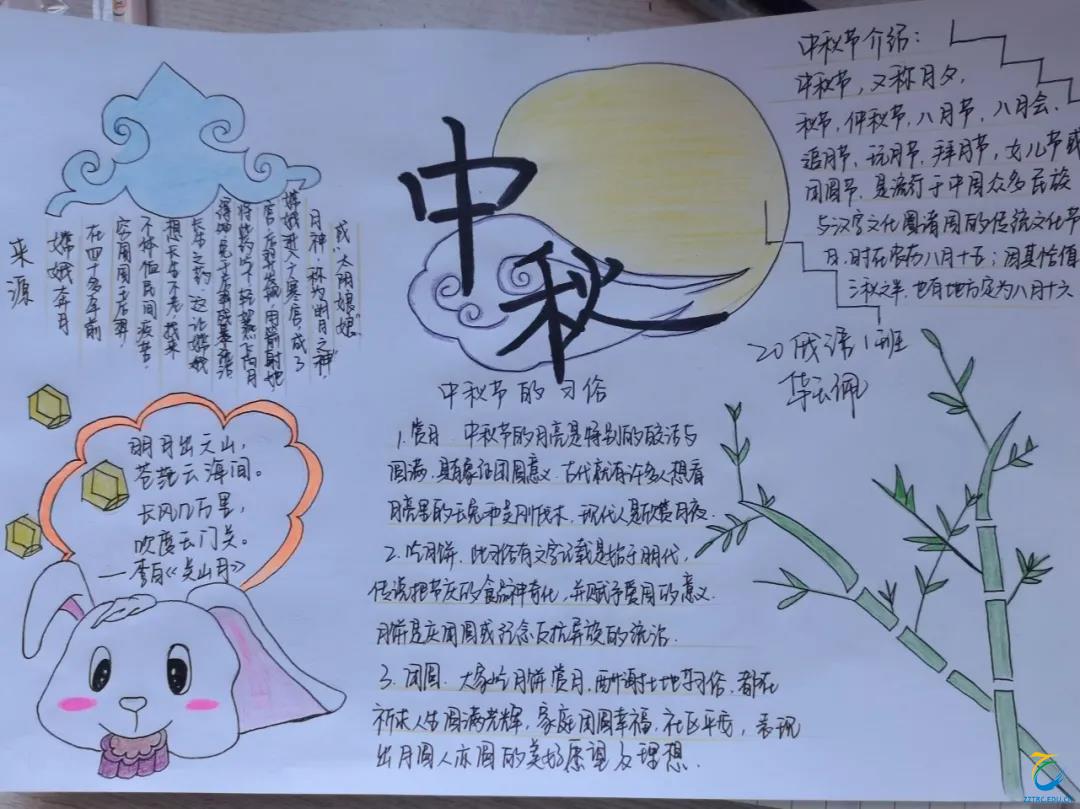 中秋
中秋节介绍：
中秋节，又称月夕，
秋节，仲秋节，八月节，八月会，
追月节，玩月节，拜月节，女儿节或
团圆节，是流行于中国众多民族
与汉字文化圈诸国的传统文化节
日，时在农历八月十五；因其恰值
三秋之半，也有地方定为八月十六
20俄语1班
华云佩
来源
嫦娥奔月
在四十多年前
不体恤民间疾苦
想长生不老，找来
长生之药，这让嫦娥
嫦娥进入广寒宫，成了
月神，称为明月之神，
或"太阴娘娘"
明月出天山，
苍茫云海间。
长风几万里，
吹度玉门关。
——李白《关山月》
中秋节的习俗
1.赏月 中秋节的月亮是特别的皎洁与
圆满，具有象征团圆意义，古代就有许多人想看
月亮里的玉兔和吴刚伐木，现代人是欣赏月夜。
2.吃月饼，此习俗有文字记载是始于明代，
传说把节庆的食品神奇化，并赋予爱国的意义
月饼是庆团圆或纪念反抗异族的统治.
3.团圆 大家吃月饼赏月，酬谢土地等习俗，都在
祈求人生圆满光辉，家庭团圆幸福，社区平安，表现
出月圆人亦圆的美好愿望及理想.
ZZTRC.EDU.CN